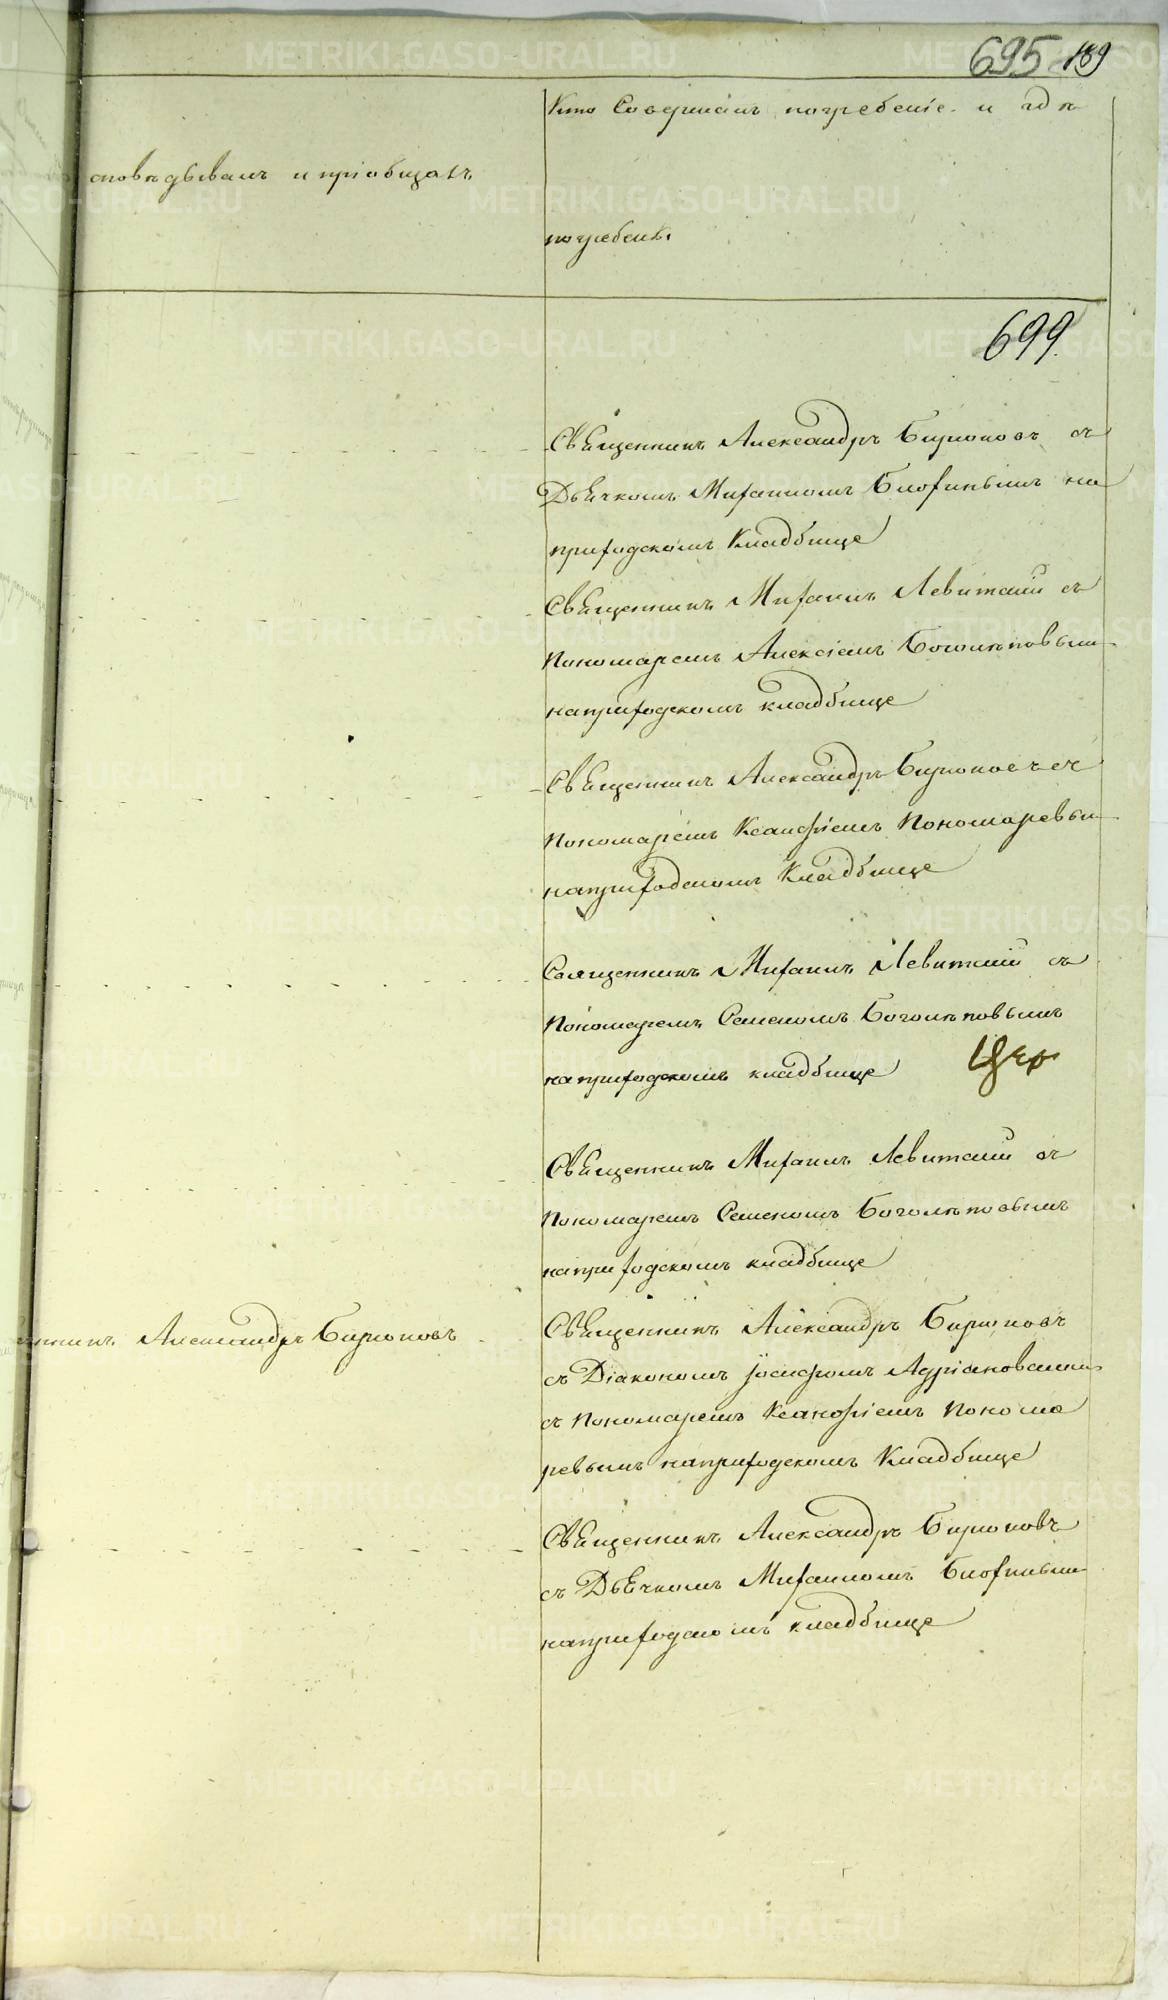 695 189
Кто Совершалъ погребенiе и гдѣ
споведывалъ и прiобщалъ
погребенъ.
699.
Священникъ Александръ Бирюковъ съ
Дьячкомъ Михаиломъ на
приходскомъ Кладбище
Священникъ Михаилъ Левитскiй съ
Пономаремъ Алексiемъ Боголѣповым
на приходскомъ кладбище
Священникъ Александръ Бирюковъ съ
Пономаремъ Ксанфiемъ Пономаревым
на приходскомъ Кладбище
Священникъ Михаилъ Левитскiй съ
Пономаремъ Семеномъ Боголѣповымъ
на приходскомъ кладбище
Священникъ Михаилъ Левитскiй съ
Пономаремъ Семеномъ Боголѣповымъ
на приходскомъ кладбище
нникъ Александръ Бирюковъ
Священникъ Александръ Бирюковъ
съ Дiакономъ Iосифомъ Адрiановскимъ
съ Пономаремъ Ксанфiемъ Понома
ревымъ на приходскомъ Кладбище
Священникъ Александръ Бирюковъ
съ Дьячкомъ Михаиломъ
на приходскомъ кладбище
METRIKI.GASO-URAL.RU